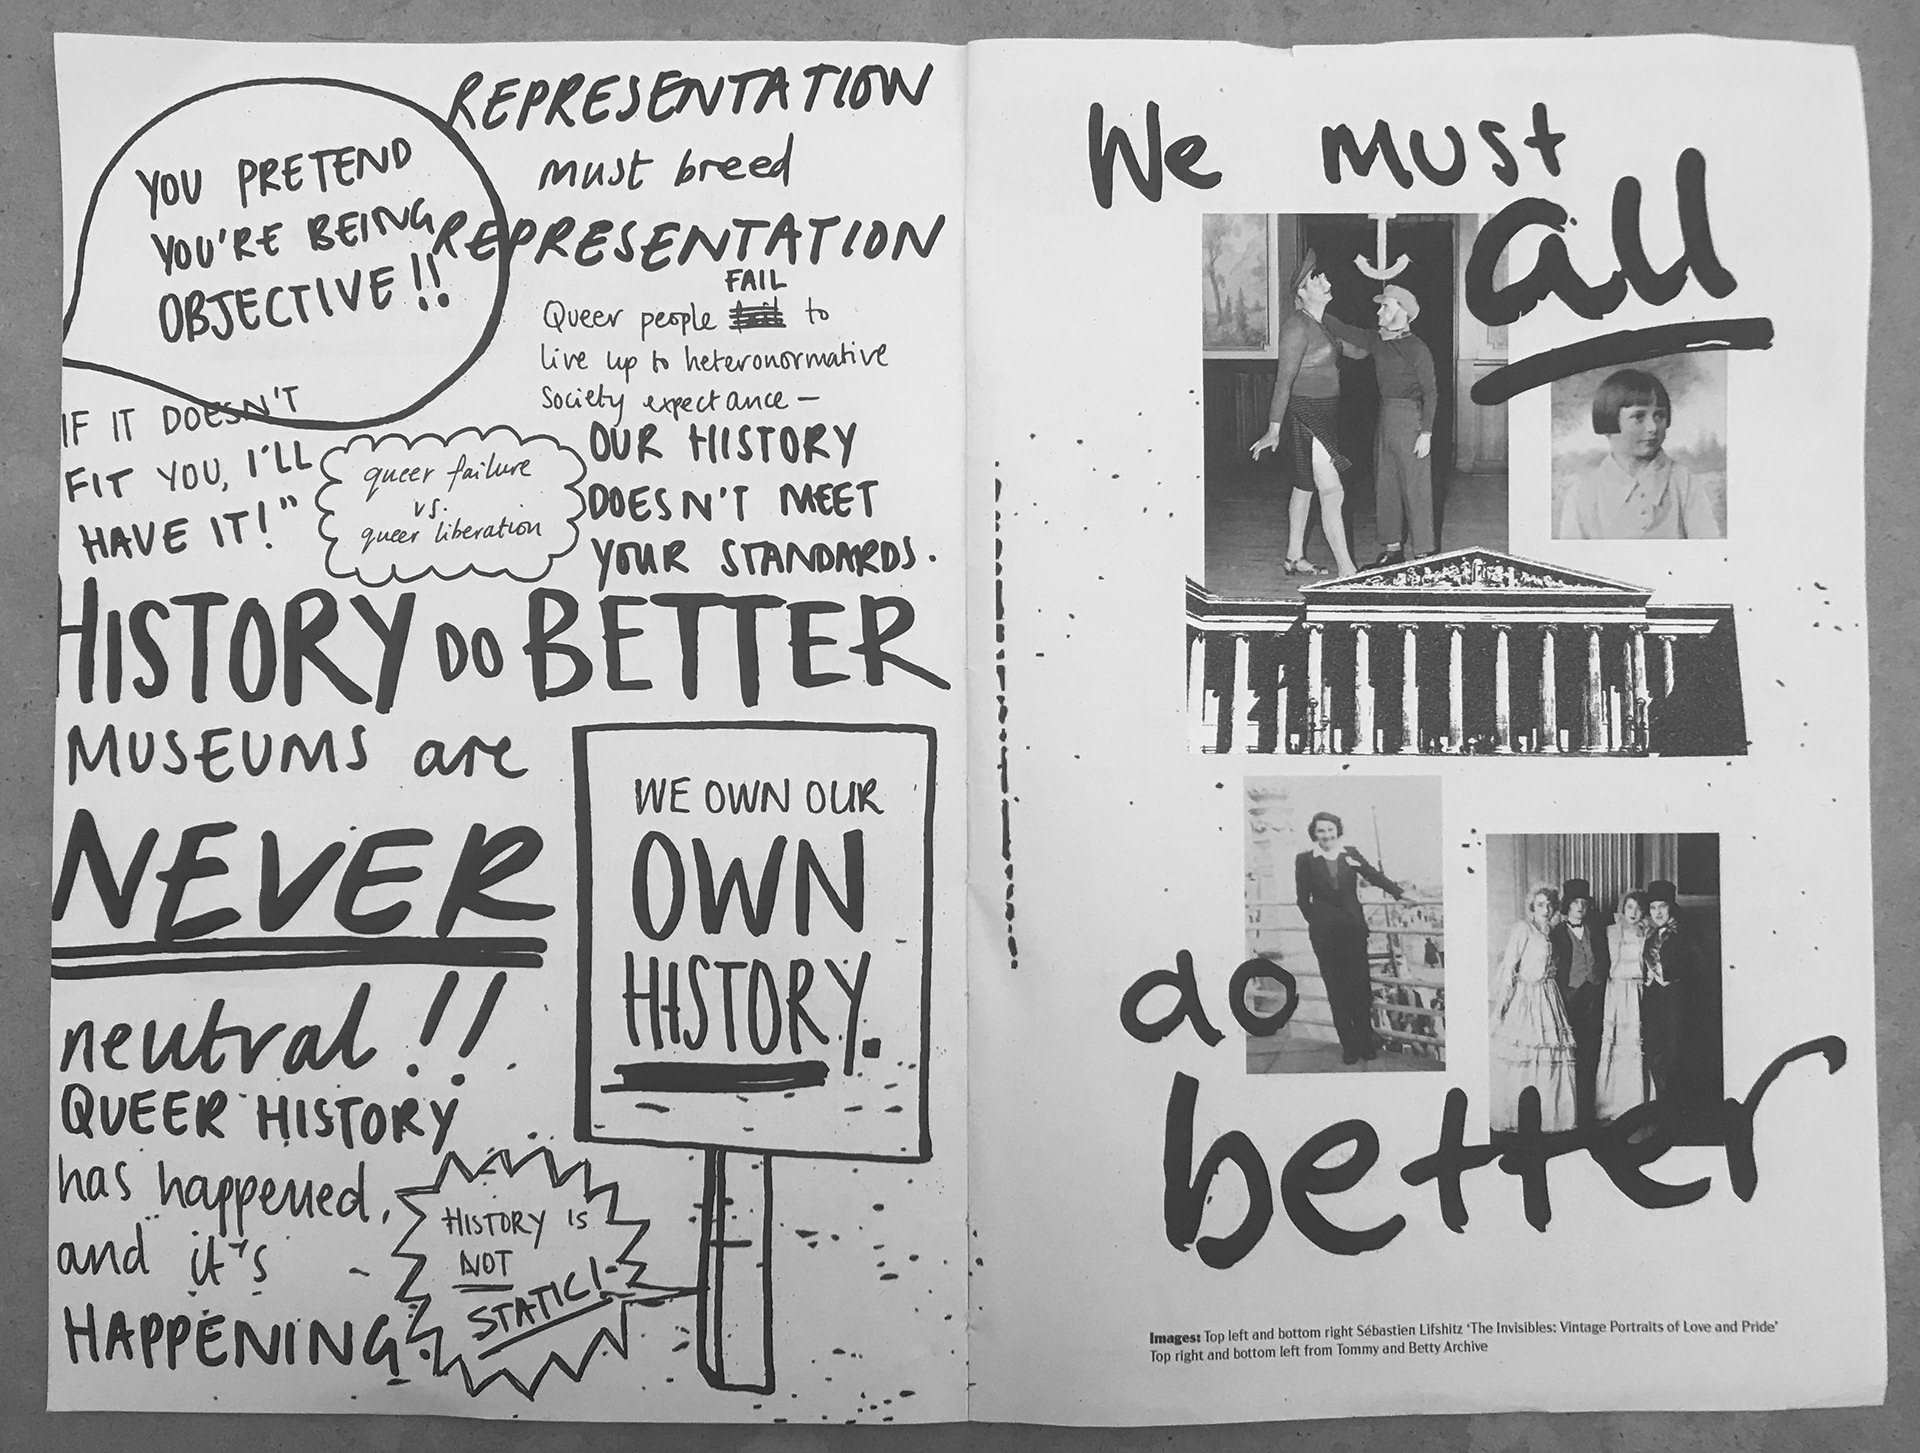 YOU PRETEND
YOU'RE BEING
OBJECTIVE!!
REPRESENTATION
must breed
REPRESENTATION
FAIL
Queer people to
live up to heteronormative
Society expectance –
OUR HISTORY
DOESN'T MEET
YOUR STANDARDS.
IF IT DOESN'T
FIT YOU, I'LL
HAVE IT!"
queer failure
vs.
queer liberation
HISTORY DO BETTER
MUSEUMS are
NEVER
neutral!!
QUEER HISTORY
has happened,
and it's
HAPPENING.
WE OWN OUR
OWN
HISTORY.
HISTORY IS
NOT
STATIC!
We must
all
do
better
Images: Top left and bottom right Sébastien Lifshitz 'The Invisibles: Vintage Portraits of Love and Pride'
Top right and bottom left from Tommy and Betty Archive